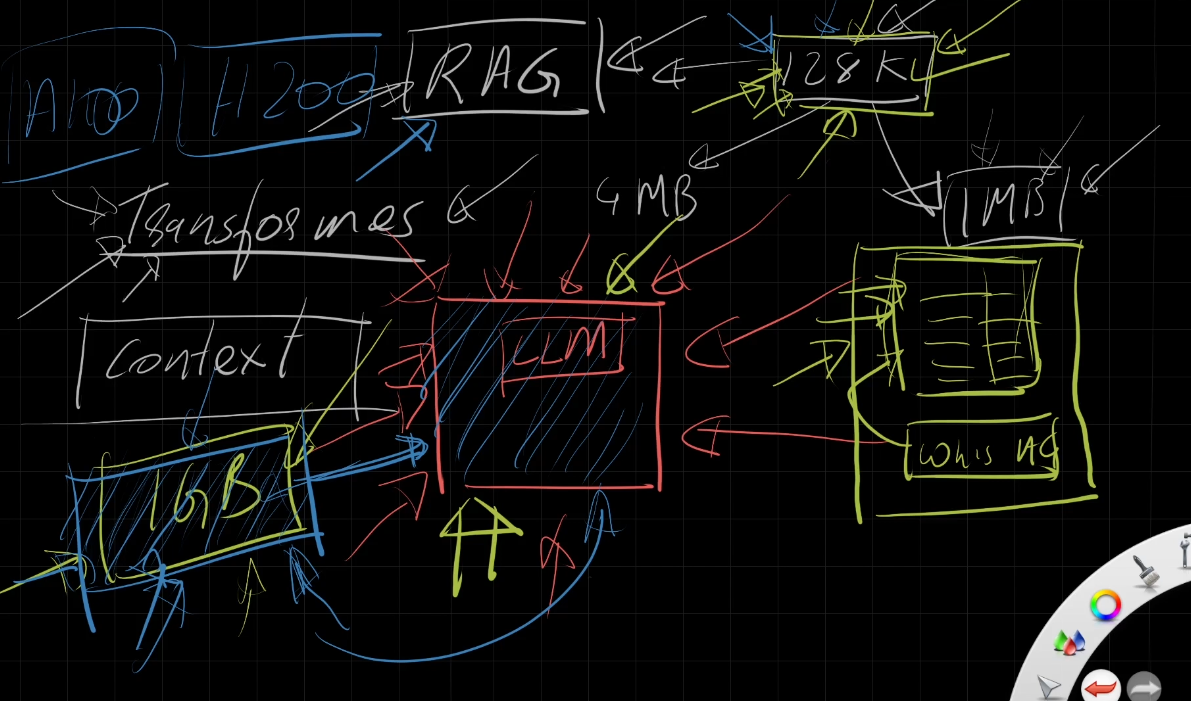 A100 H200 RAG 128K
4 MB 1 MB
Transformes
Context LLM
1GB
Whis